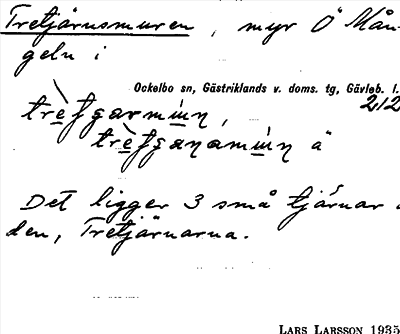 Tretjärnsmuren, myr Ö Mån-
geln i
Ockelbo sn, Gästriklands v. doms. tg, Gävleb. l.
212
Det ligger 3 små tjärnar
den, Tretjärnarna.
LARS LARSSON 1935